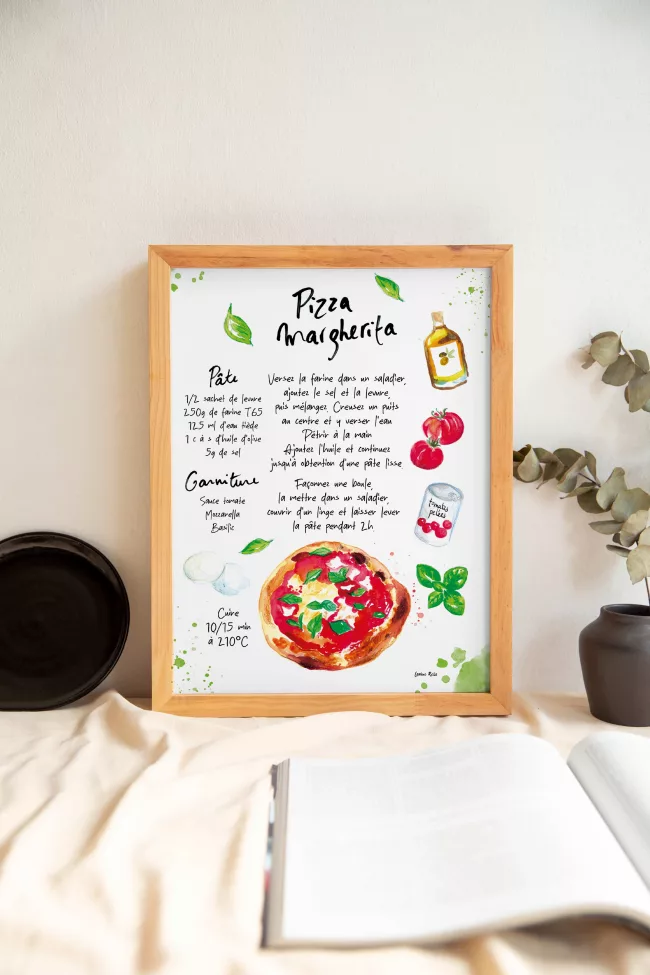 Pizza
margherita
Pâte
1/2 sachet de levure
250g de farine T65
125 ml d'eau tiède
1 c à s d'huile d'olive
5g de sel
Versez la farine dans un saladier,
ajoutez le sel et la levure,
puis mélangez. Creusez un puits
au centre et y verser l'eau
Pétrir à la main
Ajoutez l'huile et continuez
jusqu'à obtention d'une pâte lisse
Garniture
Sauce tomate
Mozzarella
Basilic
Façonnez une boule,
la mettre dans un saladier,
couvrir d'un linge et laisser lever
la pâte pendant 2h
tomates
pelées
Cuire
10/15 min
à 210°C